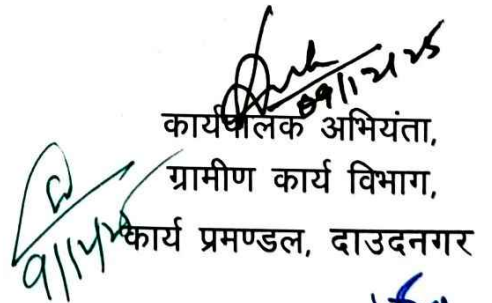 09/12/25
कार्यपालक अभियंता,
ग्रामीण कार्य विभाग,
9/12/25
कार्य प्रमण्डल, दाउदनगर